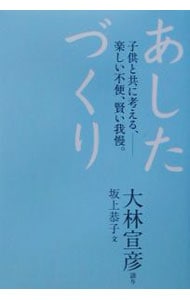 あした
づくり
子供と共に考える、——
楽しい不便、賢い我慢。
大林宣彦 語り
坂上恭子 文